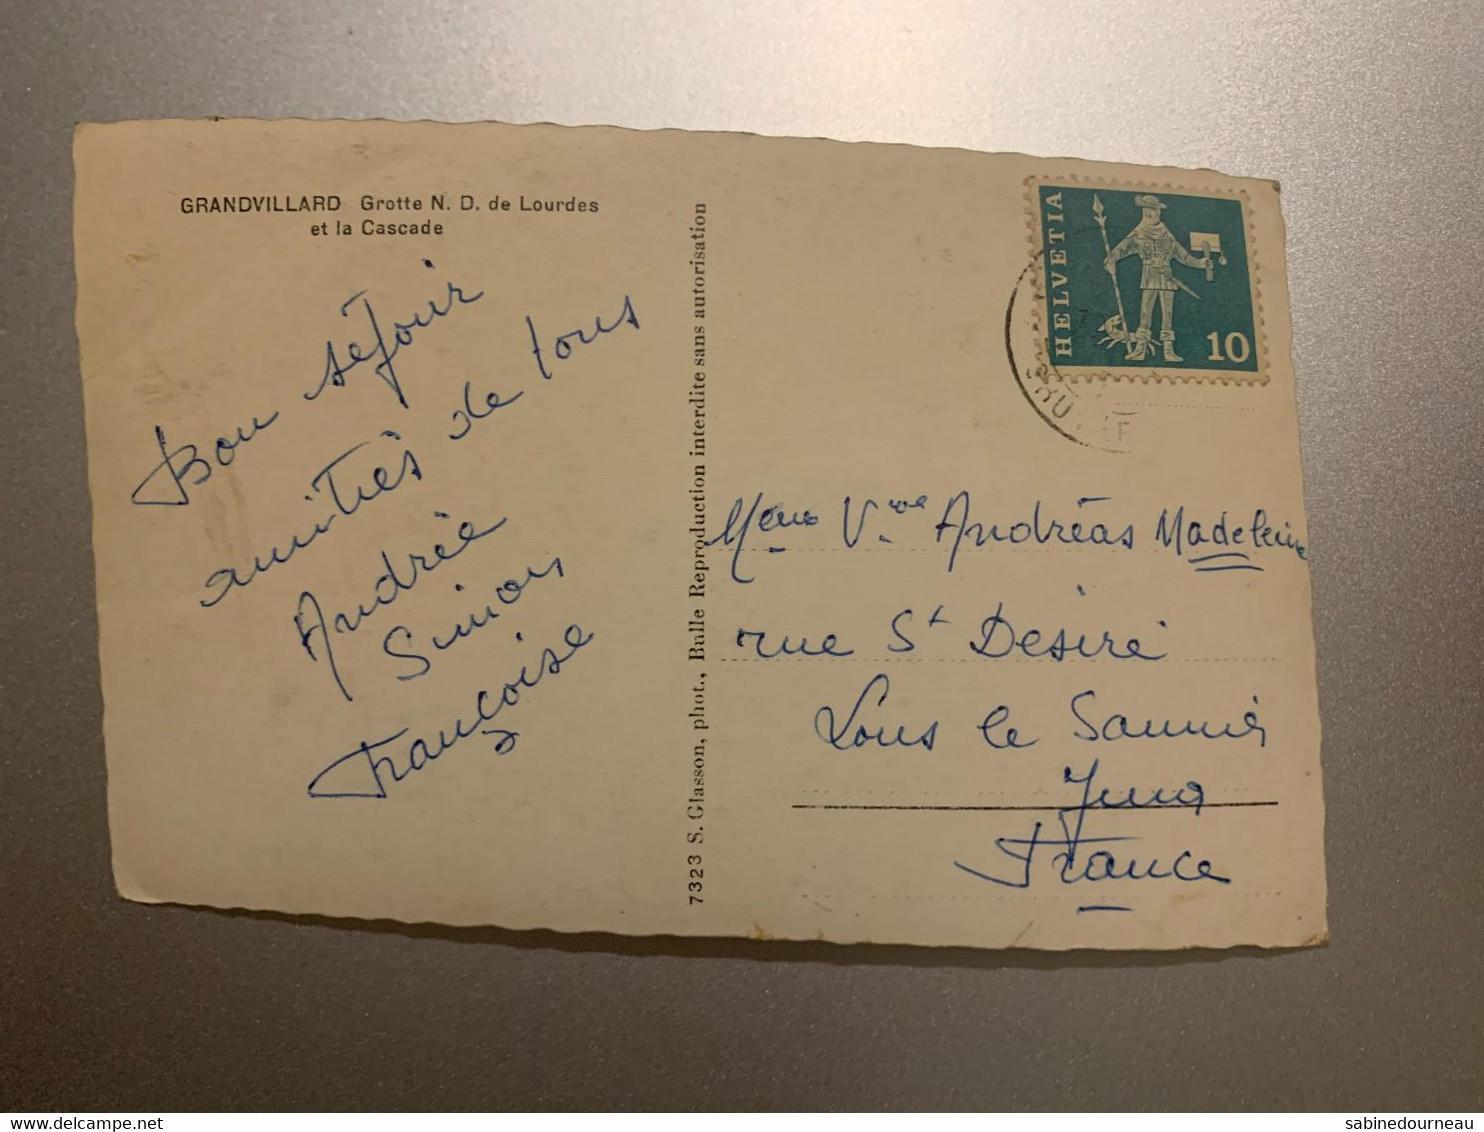 GRANDVILLARD Grotte N. D. de Lourdes
et la Cascade
Bon séjour
amitiés de tous
Andrée
Simon
Françoise
7323 S. Glasson, phot., Bulle Reproduction interdite sans autorisation
HELVETIA
10
Mme Vve Andréas Madeleine
rue St Désiré
Lons le Saunier
Jura
France
sabinedourneau